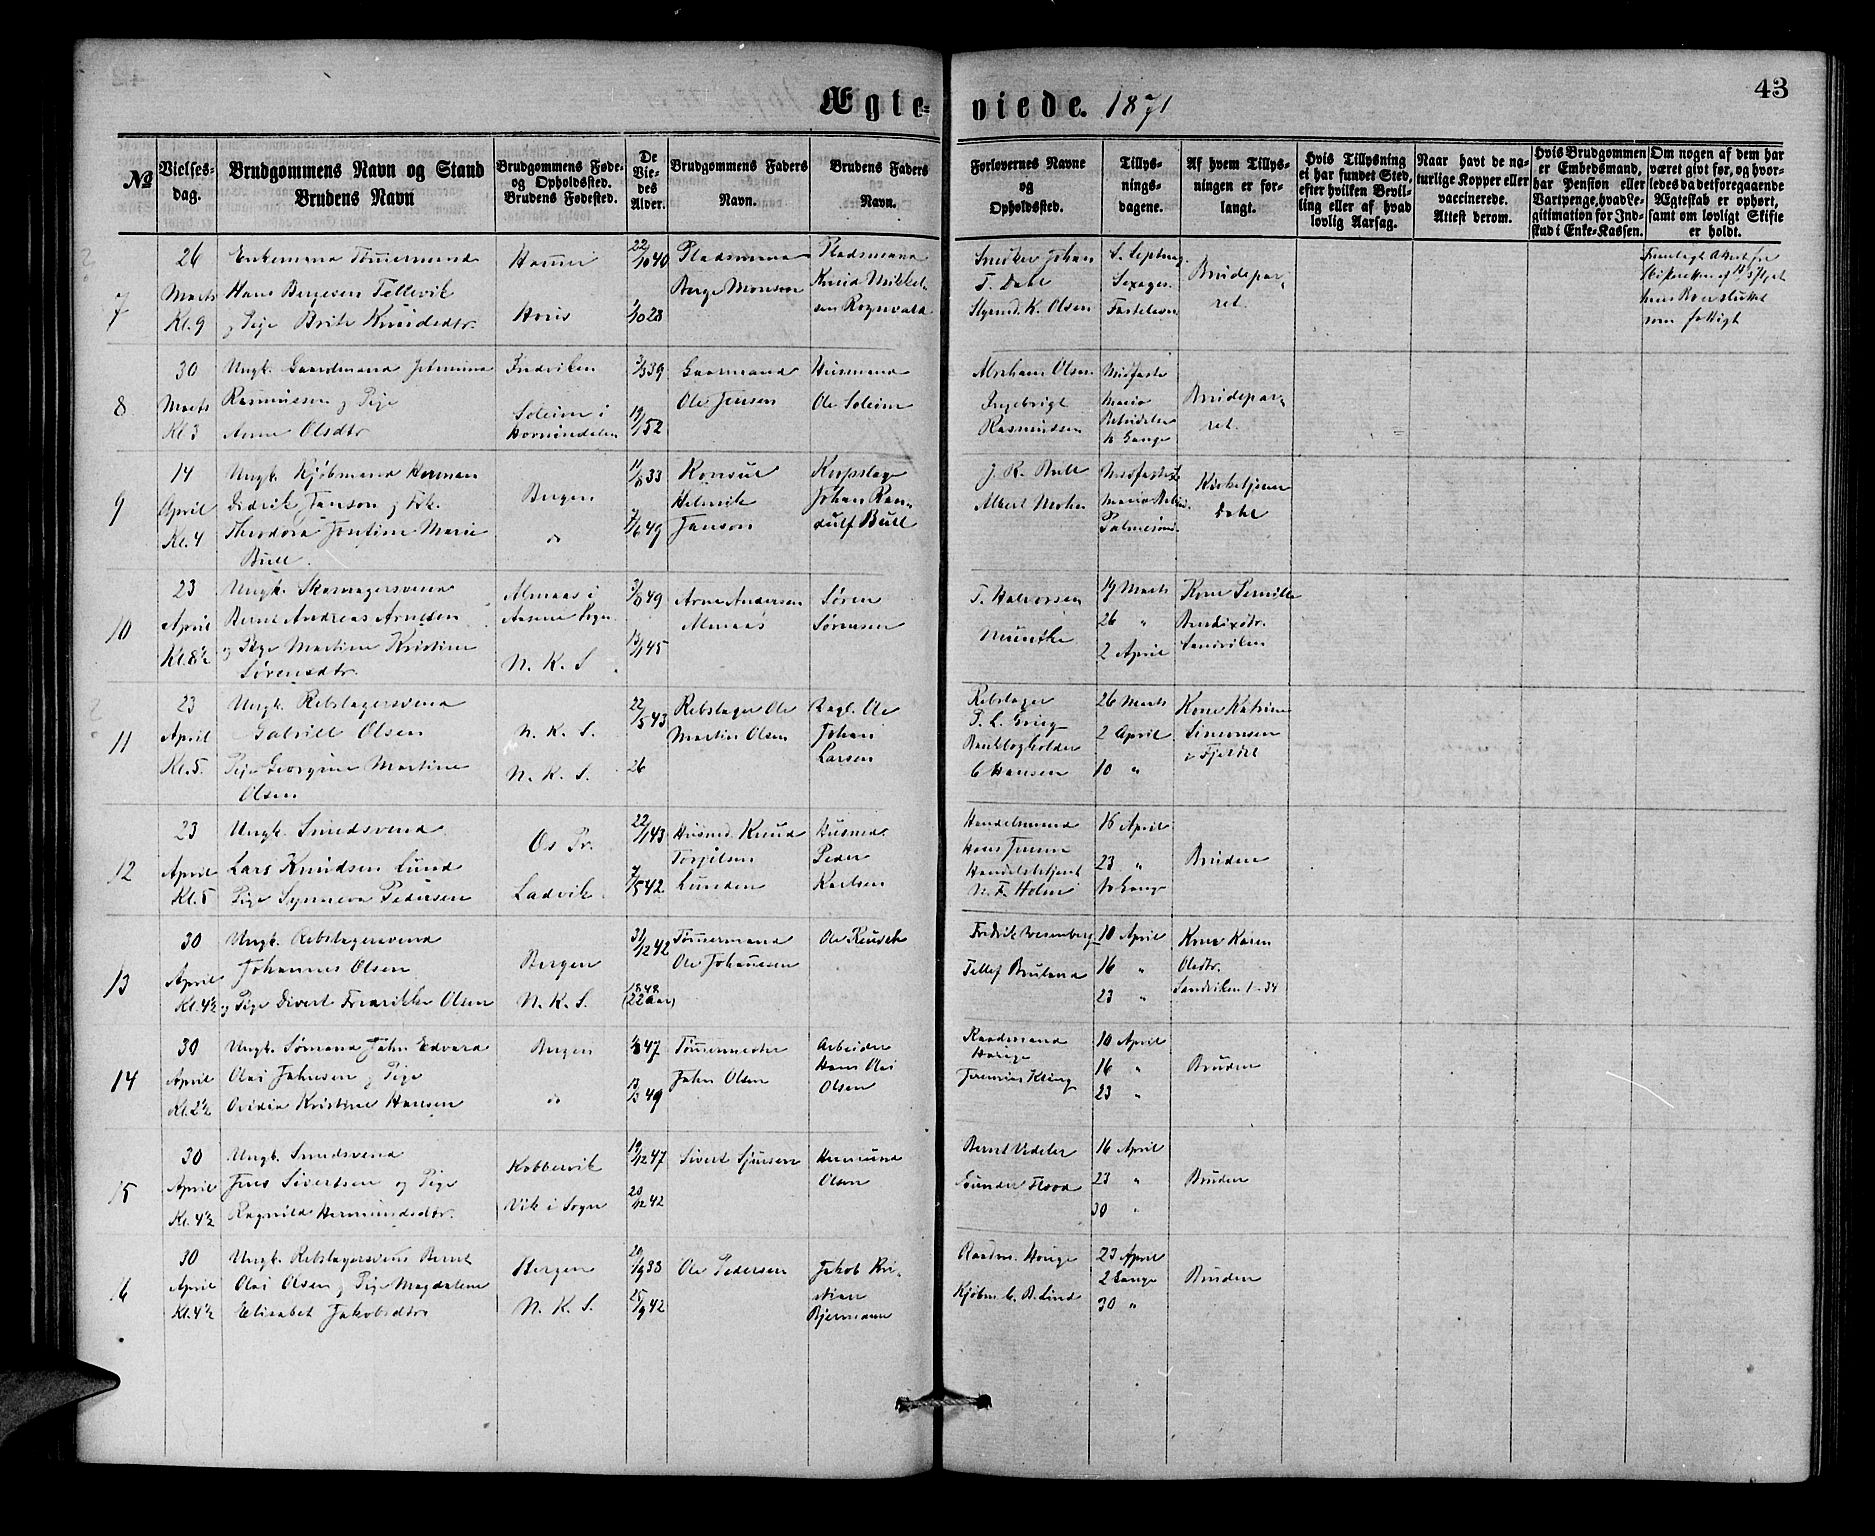 Ægteviede. 1871
43
№
Vielses-
dag.
Brudgommens Navn og Stand
Brudens Navn
Brudgommens Føde-
og Opholdssted.
Brudens Fødested.
De
Vie-
des
Alder.
Brudgommens Faders
Navn.
Brudens Faders
Navn.
Forlovernes Navne
og
Opholdssted.
Tillys-
nings-
dagene.
Af hvem Tillys-
ningen er for-
langt.
Hvis Tillysning
ei har fundet Sted,
efter hvilken Bevil-
ling eller af hvad
lovlig Aarsag.
Naar havt de na-
turlige Kopper eller
vaccinerede.
Attest derom.
Hvis Brudgommen
er Embedsmand,
har Pension eller
Vartpenge, hvad Le-
gitimation for Ind-
skud i Enke-Kassen.
Om nogen af dem har
været givt før, og hvor-
ledes da det foregaaende
Ægteskab er ophørt,
samt om lovligt Skifte
er holdt.
7
26
Marts
Kl. 9
Enkemand Tømmermand
Hans Bergesen Tellevik
og Pige Brite Knudsdtr.
22/10 40
1/10 28
Pladsmand
Berge Monsen
Pladsmand
Knud Mikkel-
sen Rognvald
Snedker Johan
T. Dahl
Styrmd. K. Olsen
S. Septuag.
Sexages.
Fastelavn
Brudepar-
ret.
8
30
Marts
Kl. 3
Ungk. Gaardmand
Rasmus Jensen og Pige
Anne Olsdtr.
Indviken
Soleim i
Hornindalen
3/3 39
19/1 52
Gaarmand
Ole Jensen
Husmand
Ole Soleim
Abraham Olsen
Ingebrigt
Rasmussen
Midfaste
Maria
Bebudelse
2 Gange
Brudepar-
ret.
9
14
April
Kl. 4
Ungk. Kjøbmand Herman
Didrik Janson og Frk.
Theodora Josefine Marie
Bull.
Bergen
do
11/8 33
2/6 49
Konsul
Helmik
Janson
Krigslage
Johan Ran-
dulf Bull
J. R. Bull
Albert Mohn
Midfaste
Maria Bebud.
Palmesønd.
Kirketjener
Dahl
10
23
April
Kl. 8½
Ungk. Skomagersvend
Bernt Andreas Arnesen
og Pige Martine Kristine
Sørensdtr.
Almaas i
Aasene Sogn
N. K. S.
3/8 49
12/1 45
Arne Andersen
Almaas
Søren
Sørensen
T. Halvorsen
Munthe
19 Marts
26 "
2 April
Kone Pernille
Bendixdtr.
Sandviken
11
23
April
Kl. 5.
Ungk. Rebslagersvend
Gabriel Olsen
Pige Georgine Martine
Olsen
N. K. S.
N. K. S.
22/5 43
26
Rebslager Ole
Martin Olsen
Dagl. Ole
Johan
Larsen
Rebslager
P. L. Grieg
Bankbogholder
C Hansen
26 Marts
2 April
10 "
Kone Katrine
Simonsen
i Fjeldet
12
23
April
Kl. 5
Ungk. Smedsvend
Lars Knudsen Lund
Pige Synneva Pedersen
Os Pr.
Ladvik
22/1 43
7/5 42
Husmd. Knud
Torgilsen
Lunden
Husmd.
Peder
Karlsen
Handelsmand
Hans Jensen
Handelsbetjent
N. F. Holm
16 April
23 "
2 Gang
Bruden
13
30
April
Kl. 4½
Ungk. Rebslagersvend
Johannes Olsen
og Pige Divert Fredrikke Olsen
Bergen
N. K. S.
31/12 42
1848
(22 aar)
Tømmermand
Ole Johannesen
Ole Knudsen
Fredrik Wesenberg
Tellef Bruland
10 April
16 "
23 "
Kone Karen
Olsdtr.
Sandviken 1-34
14
30
April
Kl. 2½
Ungk. Sømand John Edvard
Olai Johnsen og Pige
Ovidia Kristine Hansen
Bergen
do
1/8 47
12/3 49
Tømmermester
John Olsen
Arbeider
Hans Olai
Olsen
Raadmand
Hauge
Jeremias Kling
10 April
16 "
23 "
Bruden
15
30
April
Kl. 4½
Ungk. Smedsvend
Jens Sivertsen og Pige
Ragnild Hermundsdtr.
Kobbervik
Vik i Sogn
19/12 47
20/12 42
Sivert Sjursen
Hermund
Olsen
Bernt Vedeler
Gunder Flood
16 April
23 "
30 "
Bruden
16
30
April
Kl. 4½
Ungk. Rebslagersvend Bernt
Olai Olsen og Pige Magdalene
Elisabet Jakobsdtr
Bergen
N. K. S.
20/9 38
25/9 42
Ole Pedersen
Jakob Kri-
stian
Bjermann
Raadm. Hauge
Kjøbm. C. B. Lind
23 April
2 Gange
30 "
Bruden